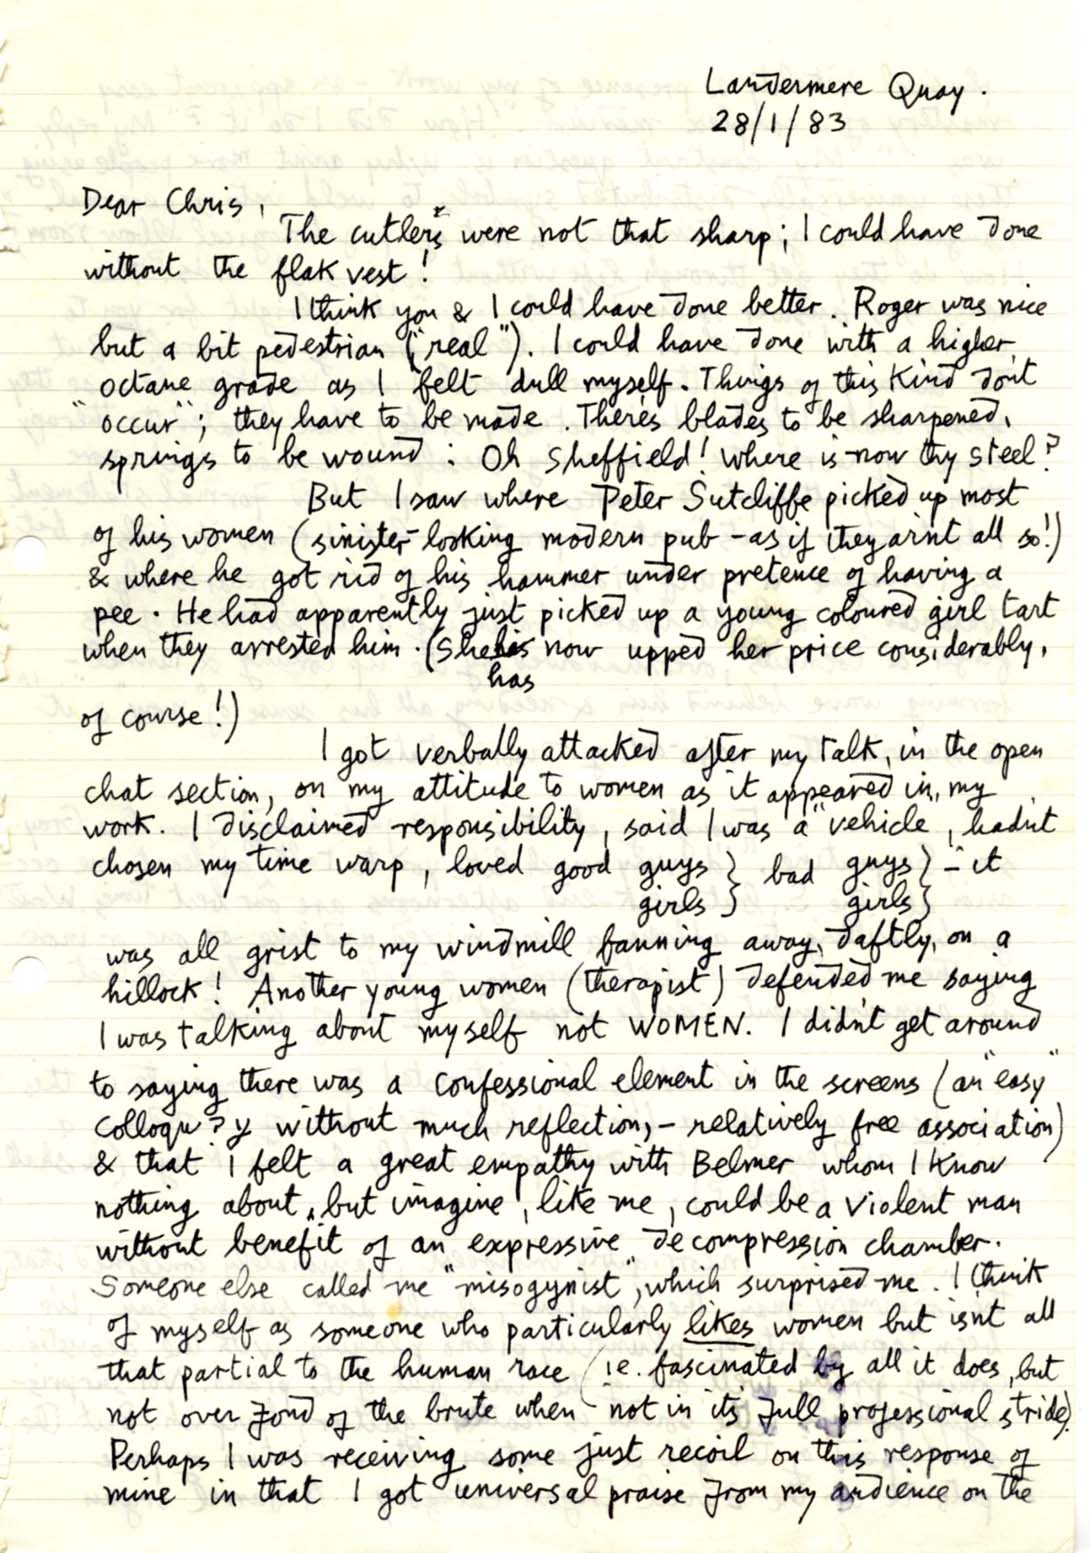 Landermere Quay.
28/1/83
Dear Chris,
The cutlers were not that sharp; I could have done
without the flak vest!
I think you & I could have done better. Roger was nice
but a bit pedestrian ("real"). I could have done with a higher
octane grade as I felt dull myself. Things of this kind dont
"occur"; they have to be made. There's blades to be sharpened,
springs to be wound: Oh Sheffield! Where is now thy steel?
But I saw where Peter Sutcliffe picked up most
of his women (sinister-looking modern pub - as if they arint all so!)
& where he got rid of his hammer under pretence of having a
pee. He had apparently just picked up a young coloured girl tart
when they arrested him. (She has now upped her price considerably,
has
of course!)
I got verbally attacked after my talk, in the open
chat section, on my attitude to women as it appeared in my
work. I disclaimed responsibility, said I was a "vehicle", hadn't
chosen my time warp, loved good guys } bad guys } - it
girls } girls }
was all grist to my windmill fanning away, daftly, on a
hillock! Another young women (therapist) defended me saying
I was talking about myself not WOMEN. I didn't get around
to saying there was a confessional element in the screens (an "easy"
colloqu?y without much reflection, - relatively free association)
& that I felt a great empathy with Belmer whom I know
nothing about, but imagine, like me, could be a violent man
without benefit of an expressive decompression chamber.
Someone else called me "misogynist", which surprised me. I think
of myself as someone who particularly likes women but isn't all
that partial to the human race (ie. fascinated by all it does, but
not over fond of the brute when not in its full professional stride).
Perhaps I was receiving some just recoil on this response of
mine in that I got universal praise from my audience on the